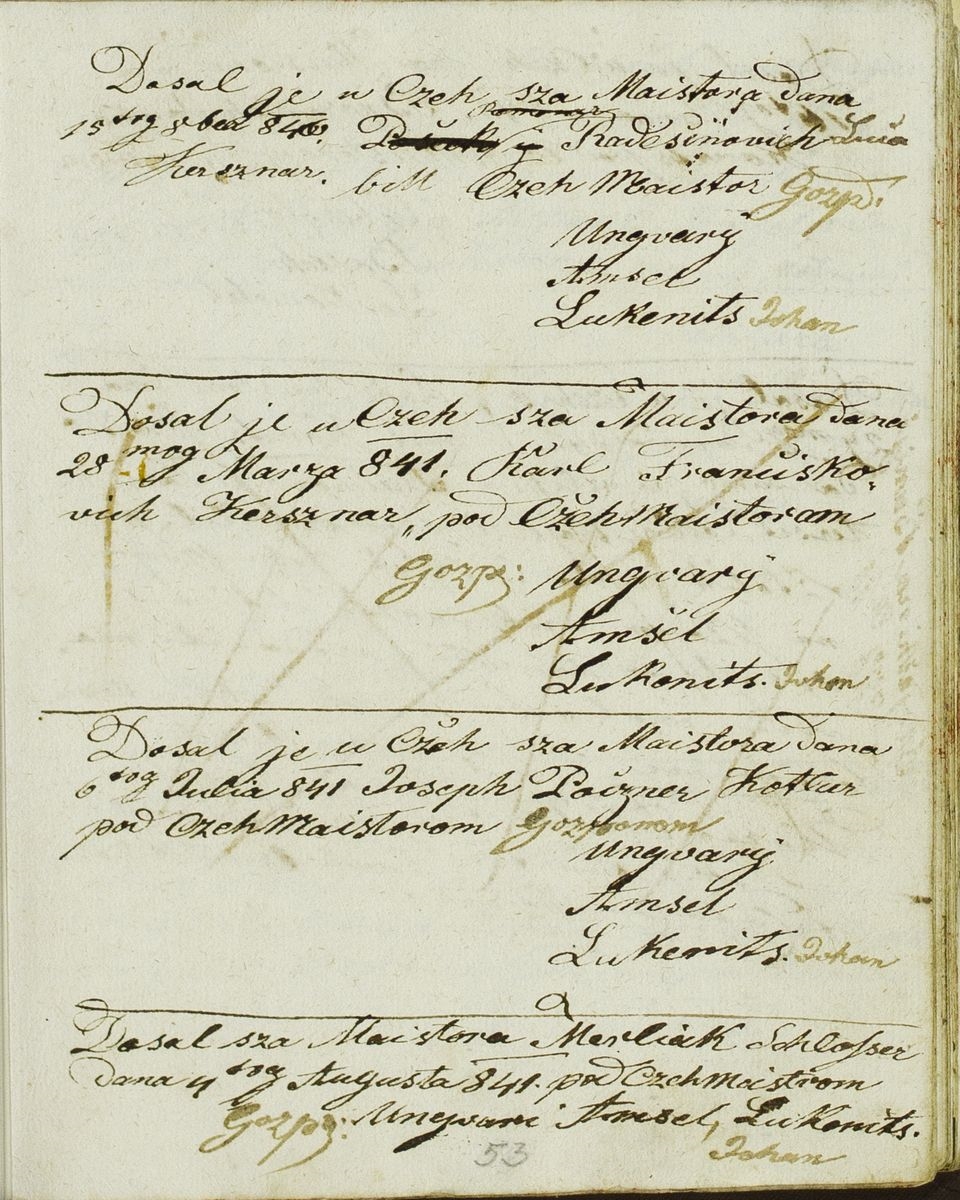 Dosal je u Czeh sza Maistora dana
15 tog 8bra 840. Radesinovich
Kersznar. bill Czeh Maistor Gozpd:
Ungvarÿ
Amsel
Lukenits Johan
Dosal je u Czeh sza Maistora dana
28 mog Marza 841. Karl Francisko-
vich Kersznar, pod Czehmaistoram
Gozp: Ungvarÿ
Amsel
Lukenits. Johan
Dosal je u Czeh sza Maistora dana
6 tog Julia 841 Joseph Poczner Kotlur
pod Czehmaistorom Gozponom
Ungvarÿ
Amsel
Lukenits. Johan
Dosal sza Maistora Merliak Schlosser
dana 4 tog Augusta 841. pod Czehmeistrom
Gozp: Ungvari Amsel, Lukenits.
Johan
53